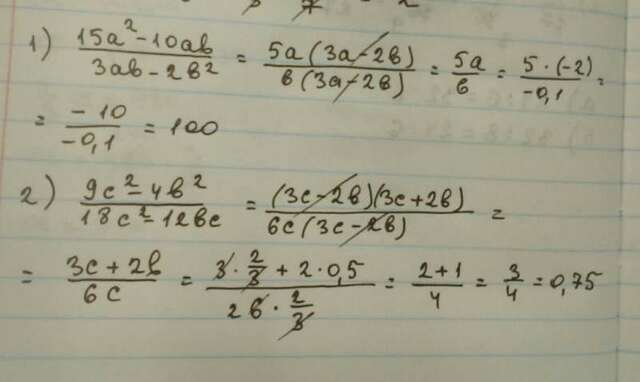 1) (15a² - 10ab)/(3ab - 2b²) = (5a(3a - 2b))/(b(3a - 2b)) = 5a/b = (5 · (-2))/(-0,1) =
= (-10)/(-0,1) = 100
2) (9c² - 4b²)/(18c² - 12bc) = ((3c - 2b)(3c + 2b))/(6c(3c - 2b)) =
= (3c + 2b)/(6c) = (3 · 2/3 + 2 · 0,5)/(26 · 2/3) = (2 + 1)/4 = 3/4 = 0,75